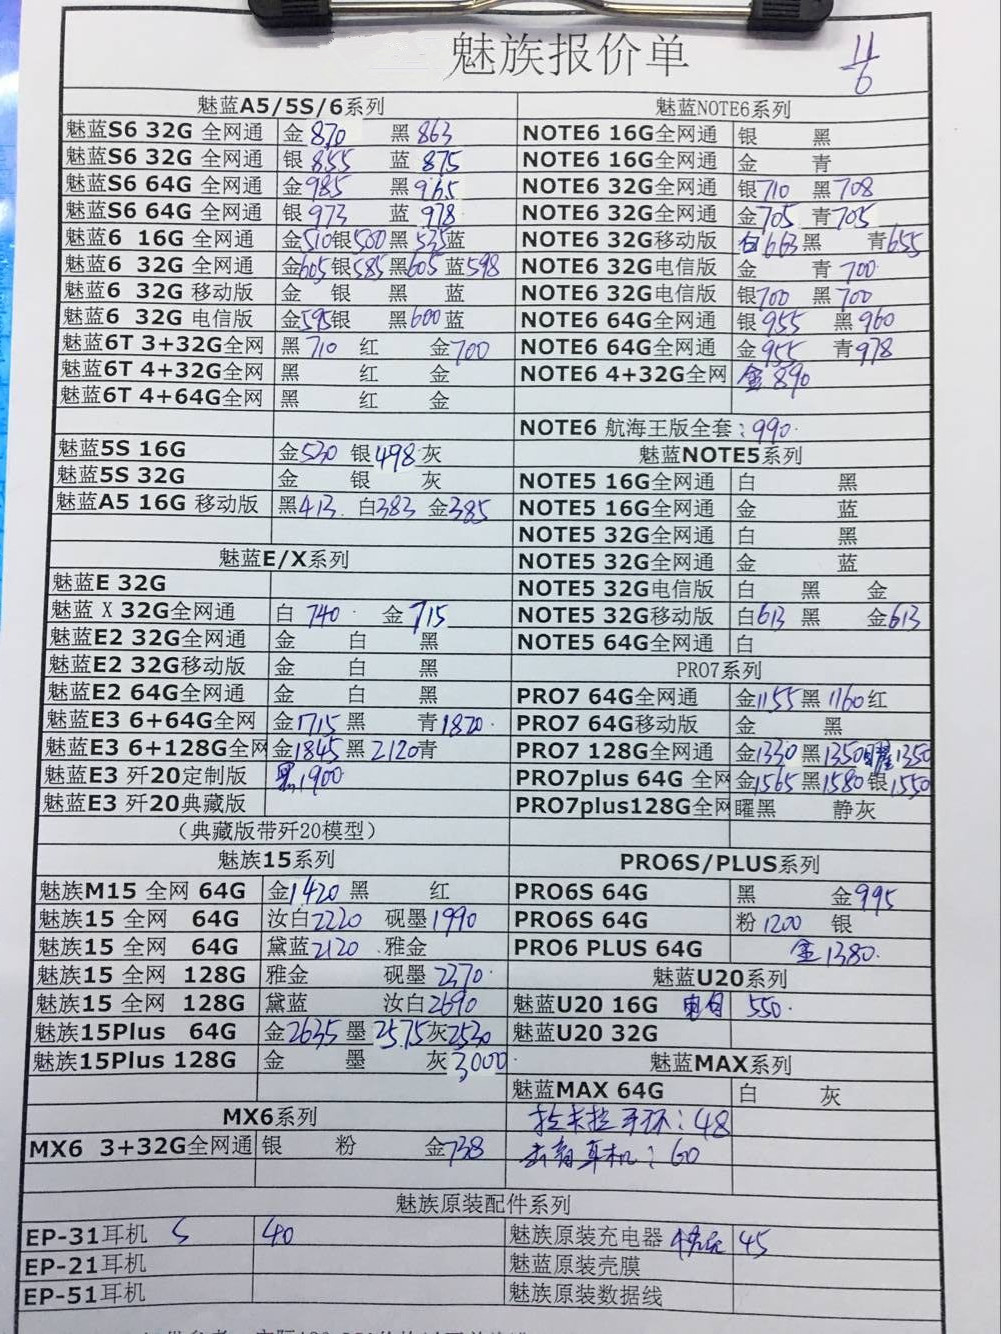 魅族报价单
11/6
魅蓝A5/5S/6系列
魅蓝S6 32G 全网通 金870 黑863
魅蓝S6 32G 全网通 银855 蓝875
魅蓝S6 64G 全网通 金985 黑965
魅蓝S6 64G 全网通 银973 蓝978
魅蓝6 16G 全网通 金510银500黑535蓝
魅蓝6 32G 全网通 金605银585黑605蓝598
魅蓝6 32G 移动版 金 银 黑 蓝
魅蓝6 32G 电信版 金595银 黑600蓝
魅蓝6T 3+32G全网 黑710 红 金700
魅蓝6T 4+32G全网 黑 红 金
魅蓝6T 4+64G全网 黑 红 金
魅蓝5S 16G 金530 银498灰
魅蓝5S 32G 金 银 灰
魅蓝A5 16G 移动版 黑413. 白383 金385
魅蓝E/X系列
魅蓝E 32G
魅蓝 X 32G全网通 白 740 金715
魅蓝E2 32G全网通 金 白 黑
魅蓝E2 32G移动版 金 白 黑
魅蓝E2 64G全网通 金 白 黑
魅蓝E3 6+64G全网 金1715黑 青1820.
魅蓝E3 6+128G全网 金1845黑2120青
魅蓝E3 歼20定制版 黑1900
魅蓝E3 歼20典藏版
（典藏版带歼20模型）
魅族15系列
魅族M15 全网 64G 金1420黑 红
魅族15 全网 64G 汝白2220 砚墨1990
魅族15 全网 64G 黛蓝2120 雅金
魅族15 全网 128G 雅金 砚墨2370
魅族15 全网 128G 黛蓝 汝白2690
魅族15Plus 64G 金2635墨2575灰2530
魅族15Plus 128G 金 墨 灰3000
MX6系列
MX6 3+32G全网通 银 粉 金738
魅蓝NOTE6系列
NOTE6 16G全网通 银 黑
NOTE6 16G全网通 金 青
NOTE6 32G全网通 银710 黑708
NOTE6 32G全网通 金705 青705
NOTE6 32G移动版 白663黑 青655
NOTE6 32G电信版 金 青700
NOTE6 32G电信版 银700 黑700
NOTE6 64G全网通 银955 黑960
NOTE6 64G全网通 金955 青978
NOTE6 4+32G全网 金890
NOTE6 航海王版全套：990.
魅蓝NOTE5系列
NOTE5 16G全网通 白 黑
NOTE5 16G全网通 金 蓝
NOTE5 32G全网通 白 黑
NOTE5 32G全网通 金 蓝
NOTE5 32G电信版 白 黑 金
NOTE5 32G移动版 白613 黑 金613
NOTE5 64G全网通 白
PRO7系列
PRO7 64G全网通 金1155黑1160红
PRO7 64G移动版 金 黑
PRO7 128G全网通 金1330黑1350曜1350
PRO7plus 64G 全网 金1565黑1580银1550
PRO7plus128G全网 曜黑 静灰
PRO6S/PLUS系列
PRO6S 64G 黑 金995
PRO6S 64G 粉1200 银
PRO6 PLUS 64G 金1380.
魅蓝U20系列
魅蓝U20 16G 550.
魅蓝U20 32G
魅蓝MAX系列
魅蓝MAX 64G 白 灰
拉卡拉手环：48
耳机：60
魅族原装配件系列
EP-31耳机 40
EP-21耳机
EP-51耳机
魅族原装充电器 45
魅蓝原装壳膜
魅族原装数据线